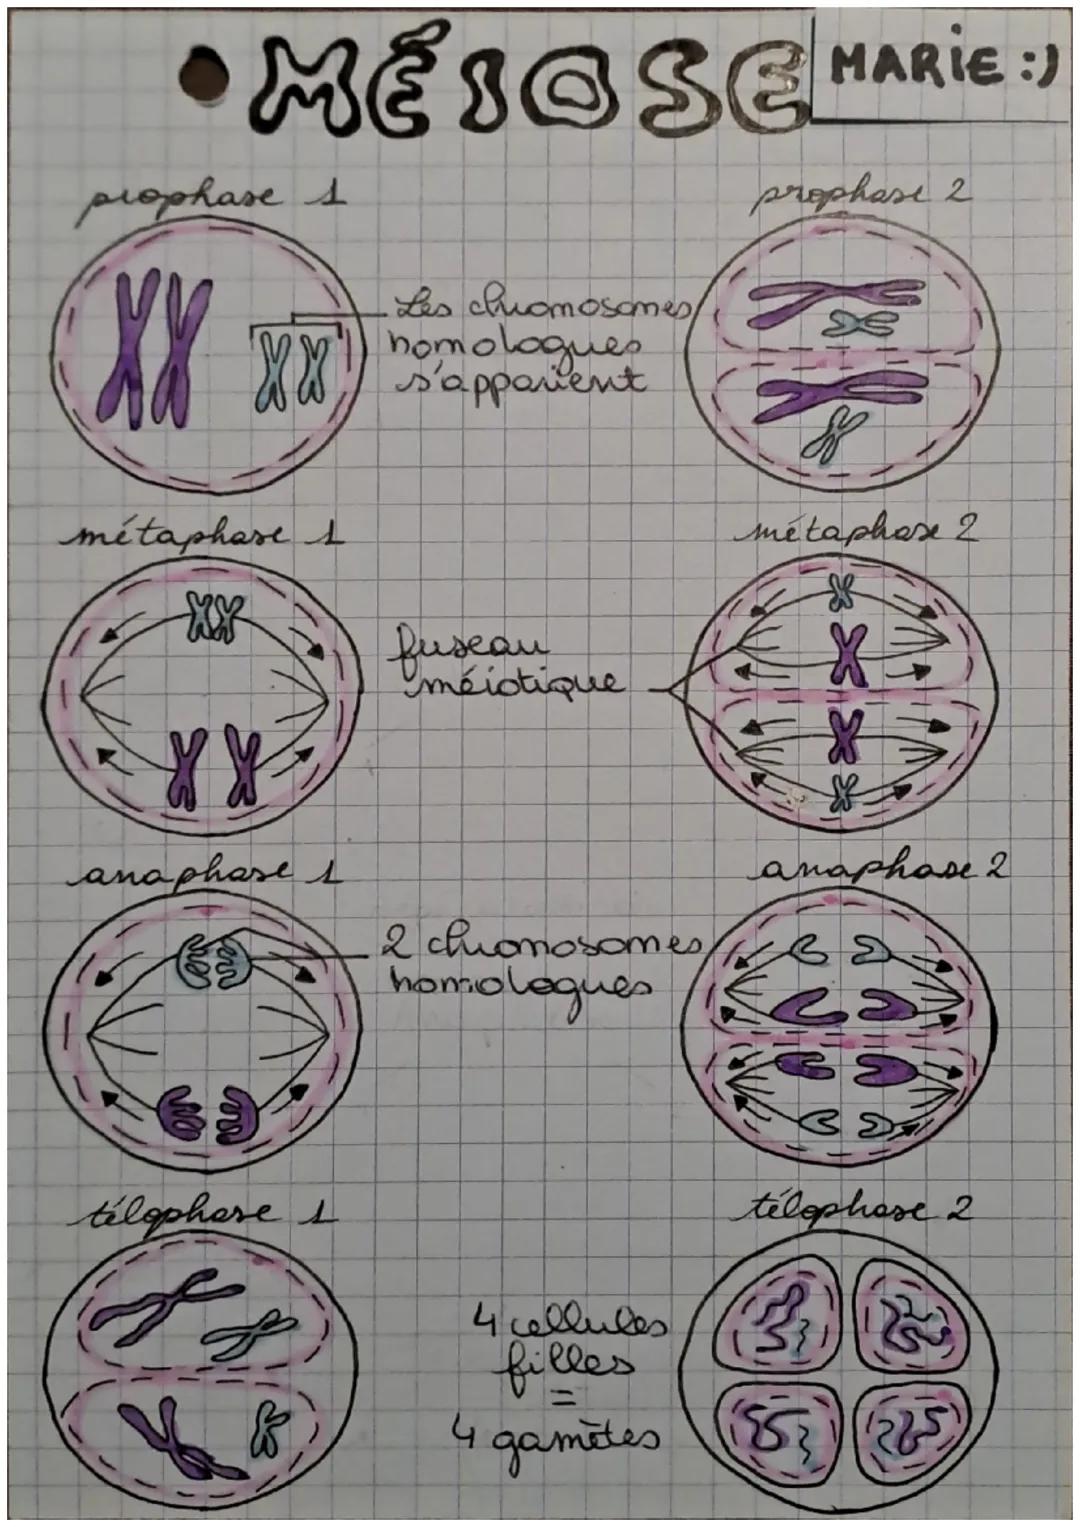 • MÉIOSE
MARIE :)
prophase 1
prophase 2
Les chromosomes
homologues
s'apparient
métaphase 1
métaphase 2
fuseau
méiotique
anaphase 1
anaphase 2
2 chromosomes
homologues
télophase 1
télophase 2
4 cellules
filles
=
4 gamètes